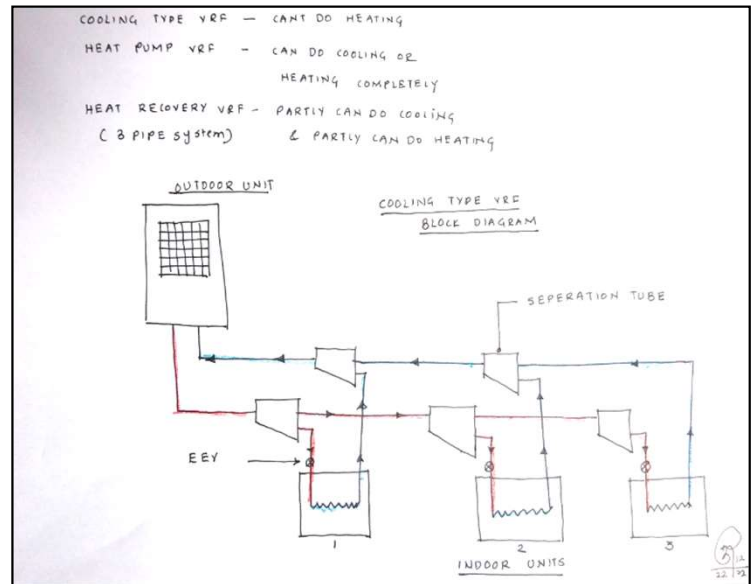 COOLING TYPE VRF - CANT DO HEATING
HEAT PUMP VRF - CAN DO COOLING OR
HEATING COMPLETELY
HEAT RECOVERY VRF - PARTLY CAN DO COOLING
( 3 PIPE system) & PARTLY CAN DO HEATING
OUTDOOR UNIT
COOLING TYPE VRF
BLOCK DIAGRAM
SEPERATION TUBE
EEV
1
2
3
INDOOR UNITS
22